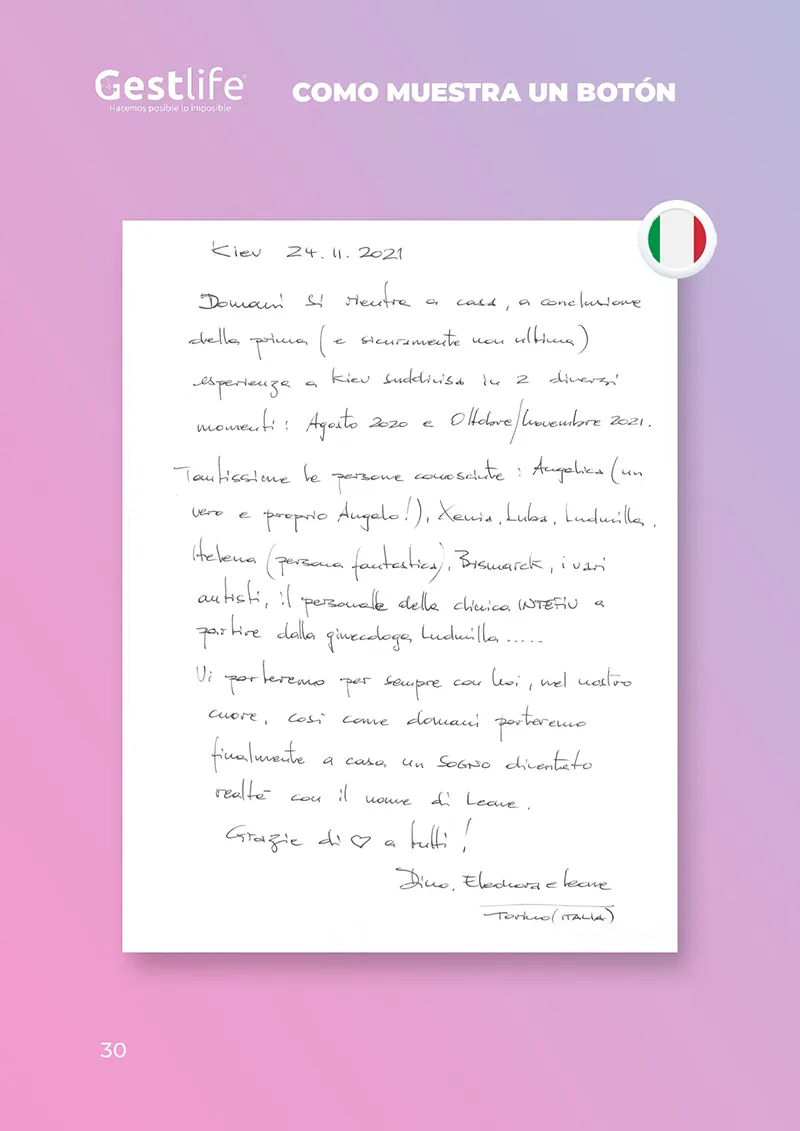 Gestlife®
Hacemos posible lo imposible
COMO MUESTRA UN BOTÓN
Kiev 24.11.2021
Domani si rientra a casa, a conclusione
della prima (e sicuramente non ultima)
esperienza a Kiev suddivisa in 2 diversi
momenti: Agosto 2020 e Ottobre/Novembre 2021.
Tantissime le persone conosciute: Angelica (un
vero e proprio Angelo!), Xenia, Luba, Ludmilla,
Helena (persona fantastica), Bismarck, i vari
autisti, il personale della clinica
partire dalla ginecologa Ludmilla .....
Vi porteremo per sempre con noi, nel nostro
cuore, così come domani porteremo
finalmente a casa un SOGNO diventato
realtà con il nome di Leone.
Grazie di ♡ a tutti!
Dino, Eleonora e Leone
Torino (ITALIA)
30